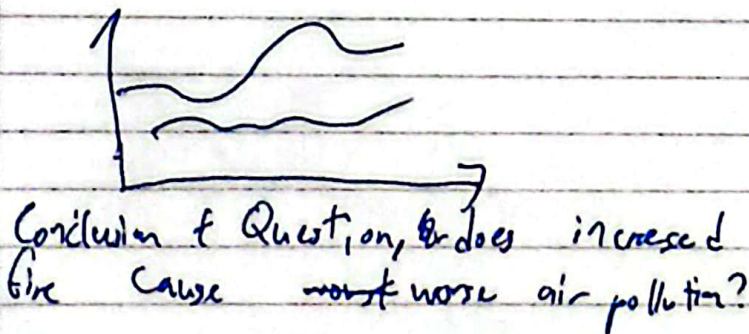 Conclusion & Question, does increased
fire cause worse air pollution?